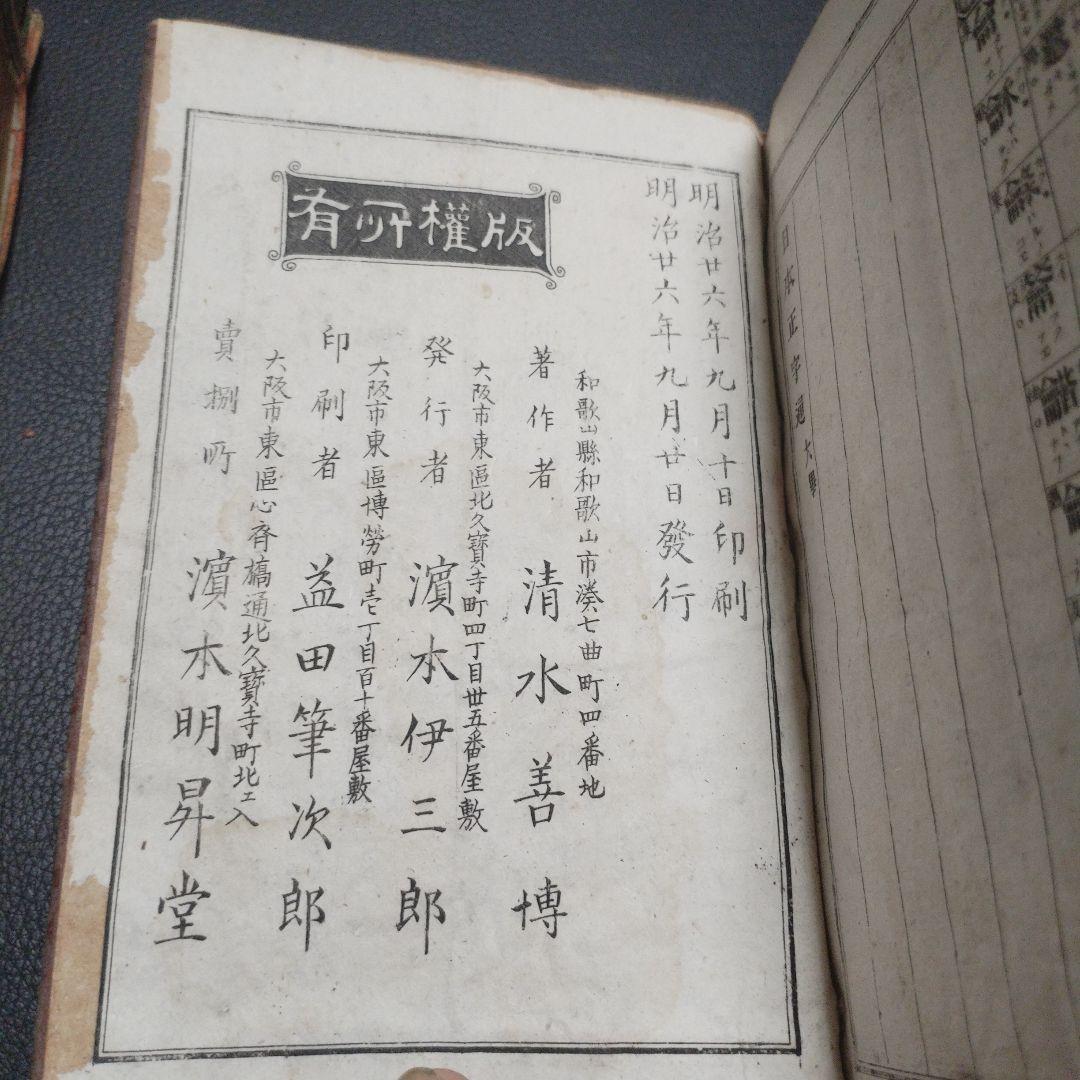 明治廿六年九月十日印刷
明治廿六年九月廿日發行
版權所有
和歌山縣和歌山市湊七曲町四番地
著作者 清水善博
大阪市東區北久寶寺町四丁目卅五番屋敷
発行者 濵本伊三郎
大阪市東區博勞町壱丁目百十番屋敷
印刷者 益田筆次郎
大阪市東區心斉橋通北久寶寺町北エ入
賣捌所 濵本明昇堂